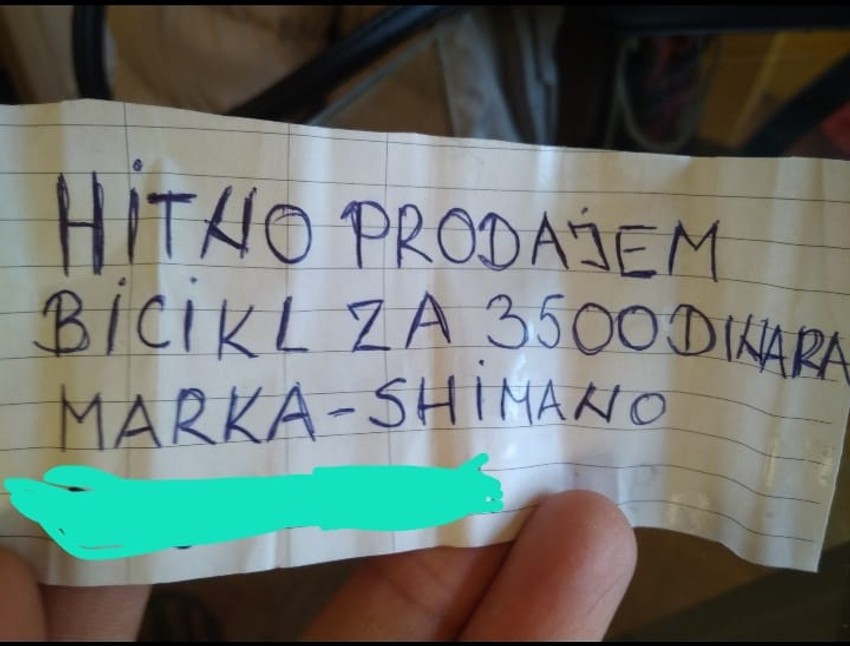 HiTNO PRODAJEM
BiCiKL ZA 3500 DINARA
MARKA-SHiMANO